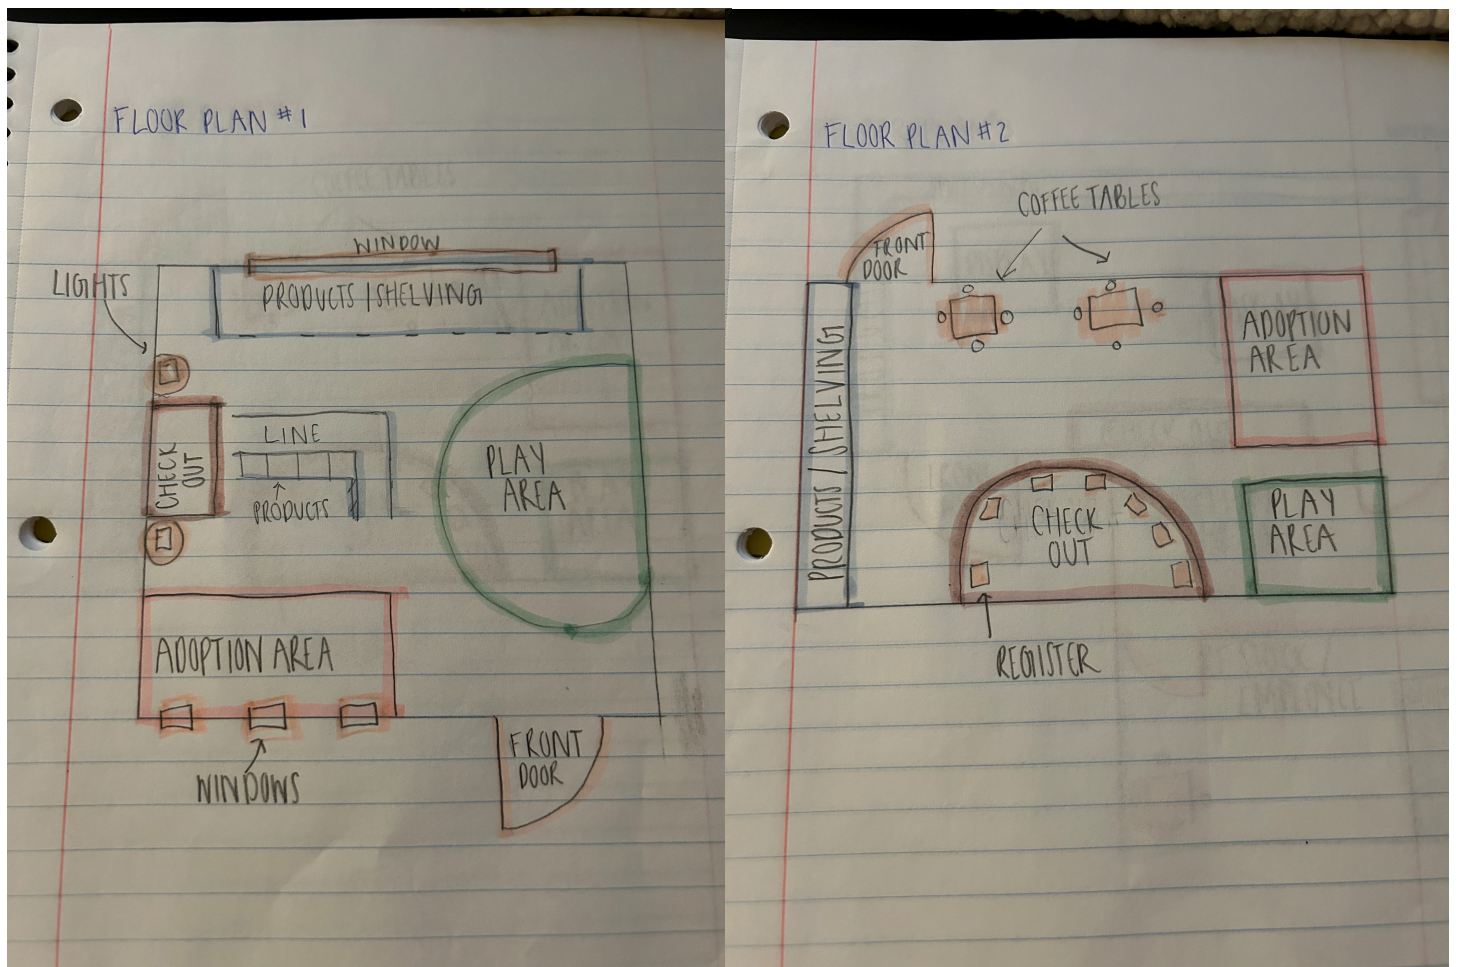 FLOOR PLAN #1
WINDOW
LIGHTS
PRODUCTS/SHELVING
CHECK
OUT
LINE
PRODUCTS
PLAY
AREA
ADOPTION AREA
WINDOWS
FRONT
DOOR
FLOOR PLAN #2
COFFEE TABLES
FRONT
DOOR
PRODUCTS/SHELVING
ADOPTION
AREA
CHECK
OUT
PLAY
AREA
REGISTER